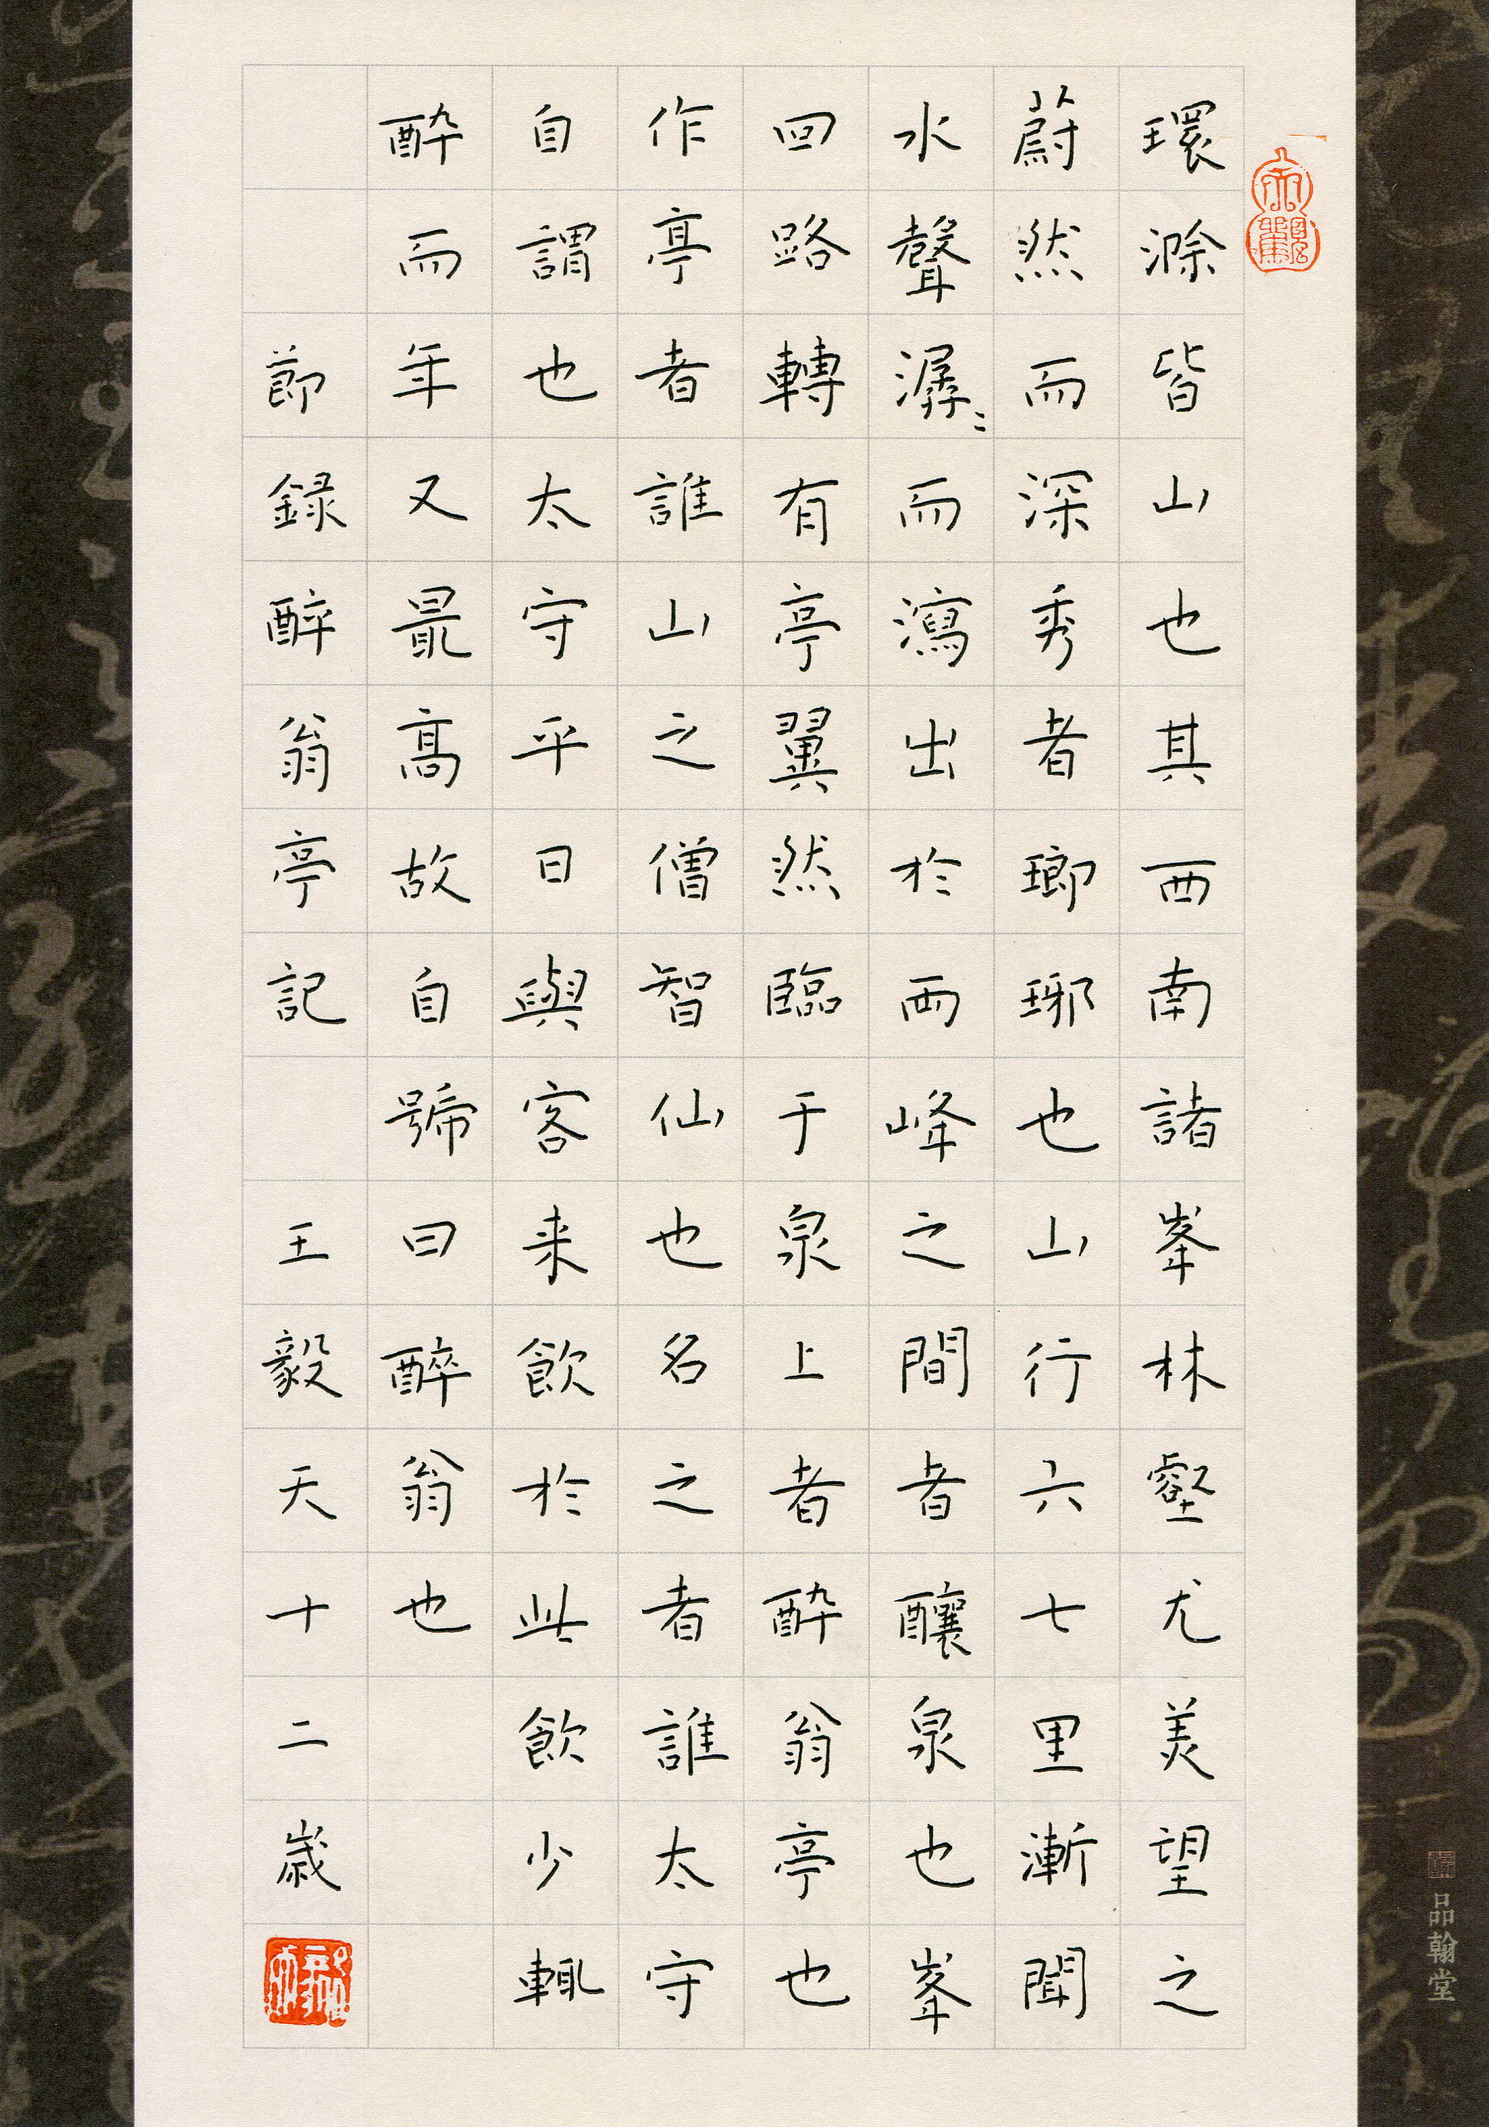 環滁皆山也其西南諸峯林壑尤美望之
蔚然而深秀者瑯琊也山行六七里漸聞
水聲潺〻而瀉出於両峰之間者釀泉也峯
回路轉有亭翼然臨于泉上者酔翁亭也
作亭者誰山之僧智仙也名之者誰太守
自謂也太守平日與客来飲於此飲少輒
酔而年又最髙故自號曰醉翁也
節録醉翁亭記 王毅天十二歲
品翰堂